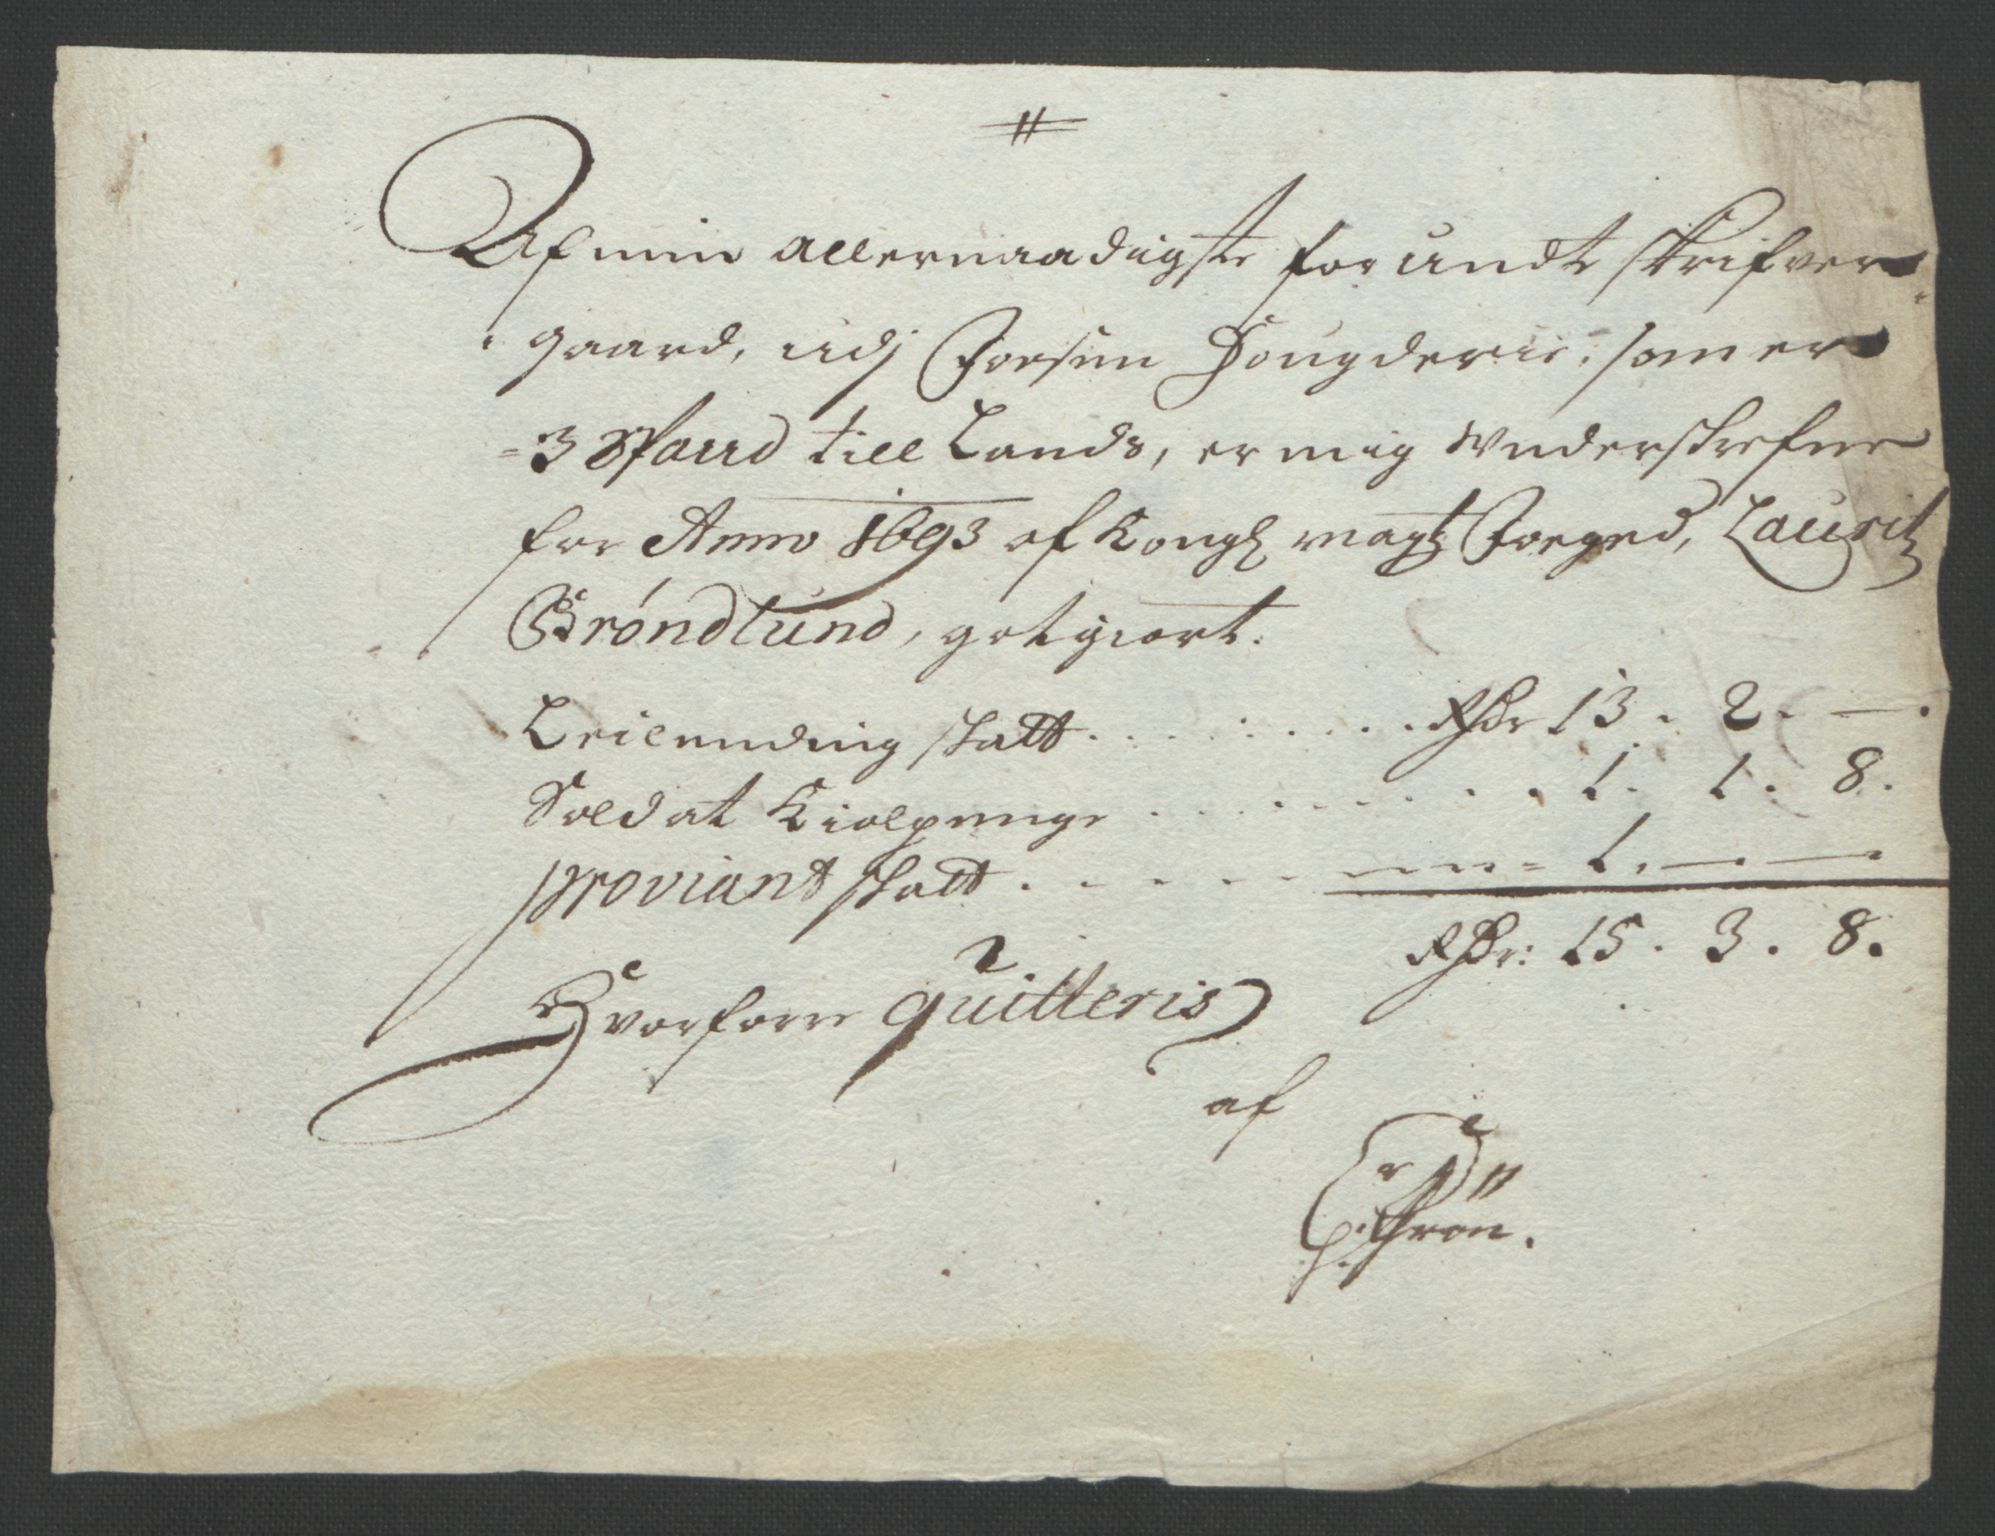 Af min allernaadigste forundte skrifver
gaard, udj Fosen Fougderie, som er
3 Spand till Lands, er mig Underskrefne
for Anno 1693 af Kongl maytz Foeged, Lauritz
Bröndlund, gotgiort.
Leilending skatt . . . . . . . . Rdr 13 . 2 . —.
Soldat Kiolpenge . . . . . . . . 1. 1. 8.
proviant skatt . . . . . . 1. — . —
Rdr: 15 . 3 . 8.
Hvorforre quitteris
af